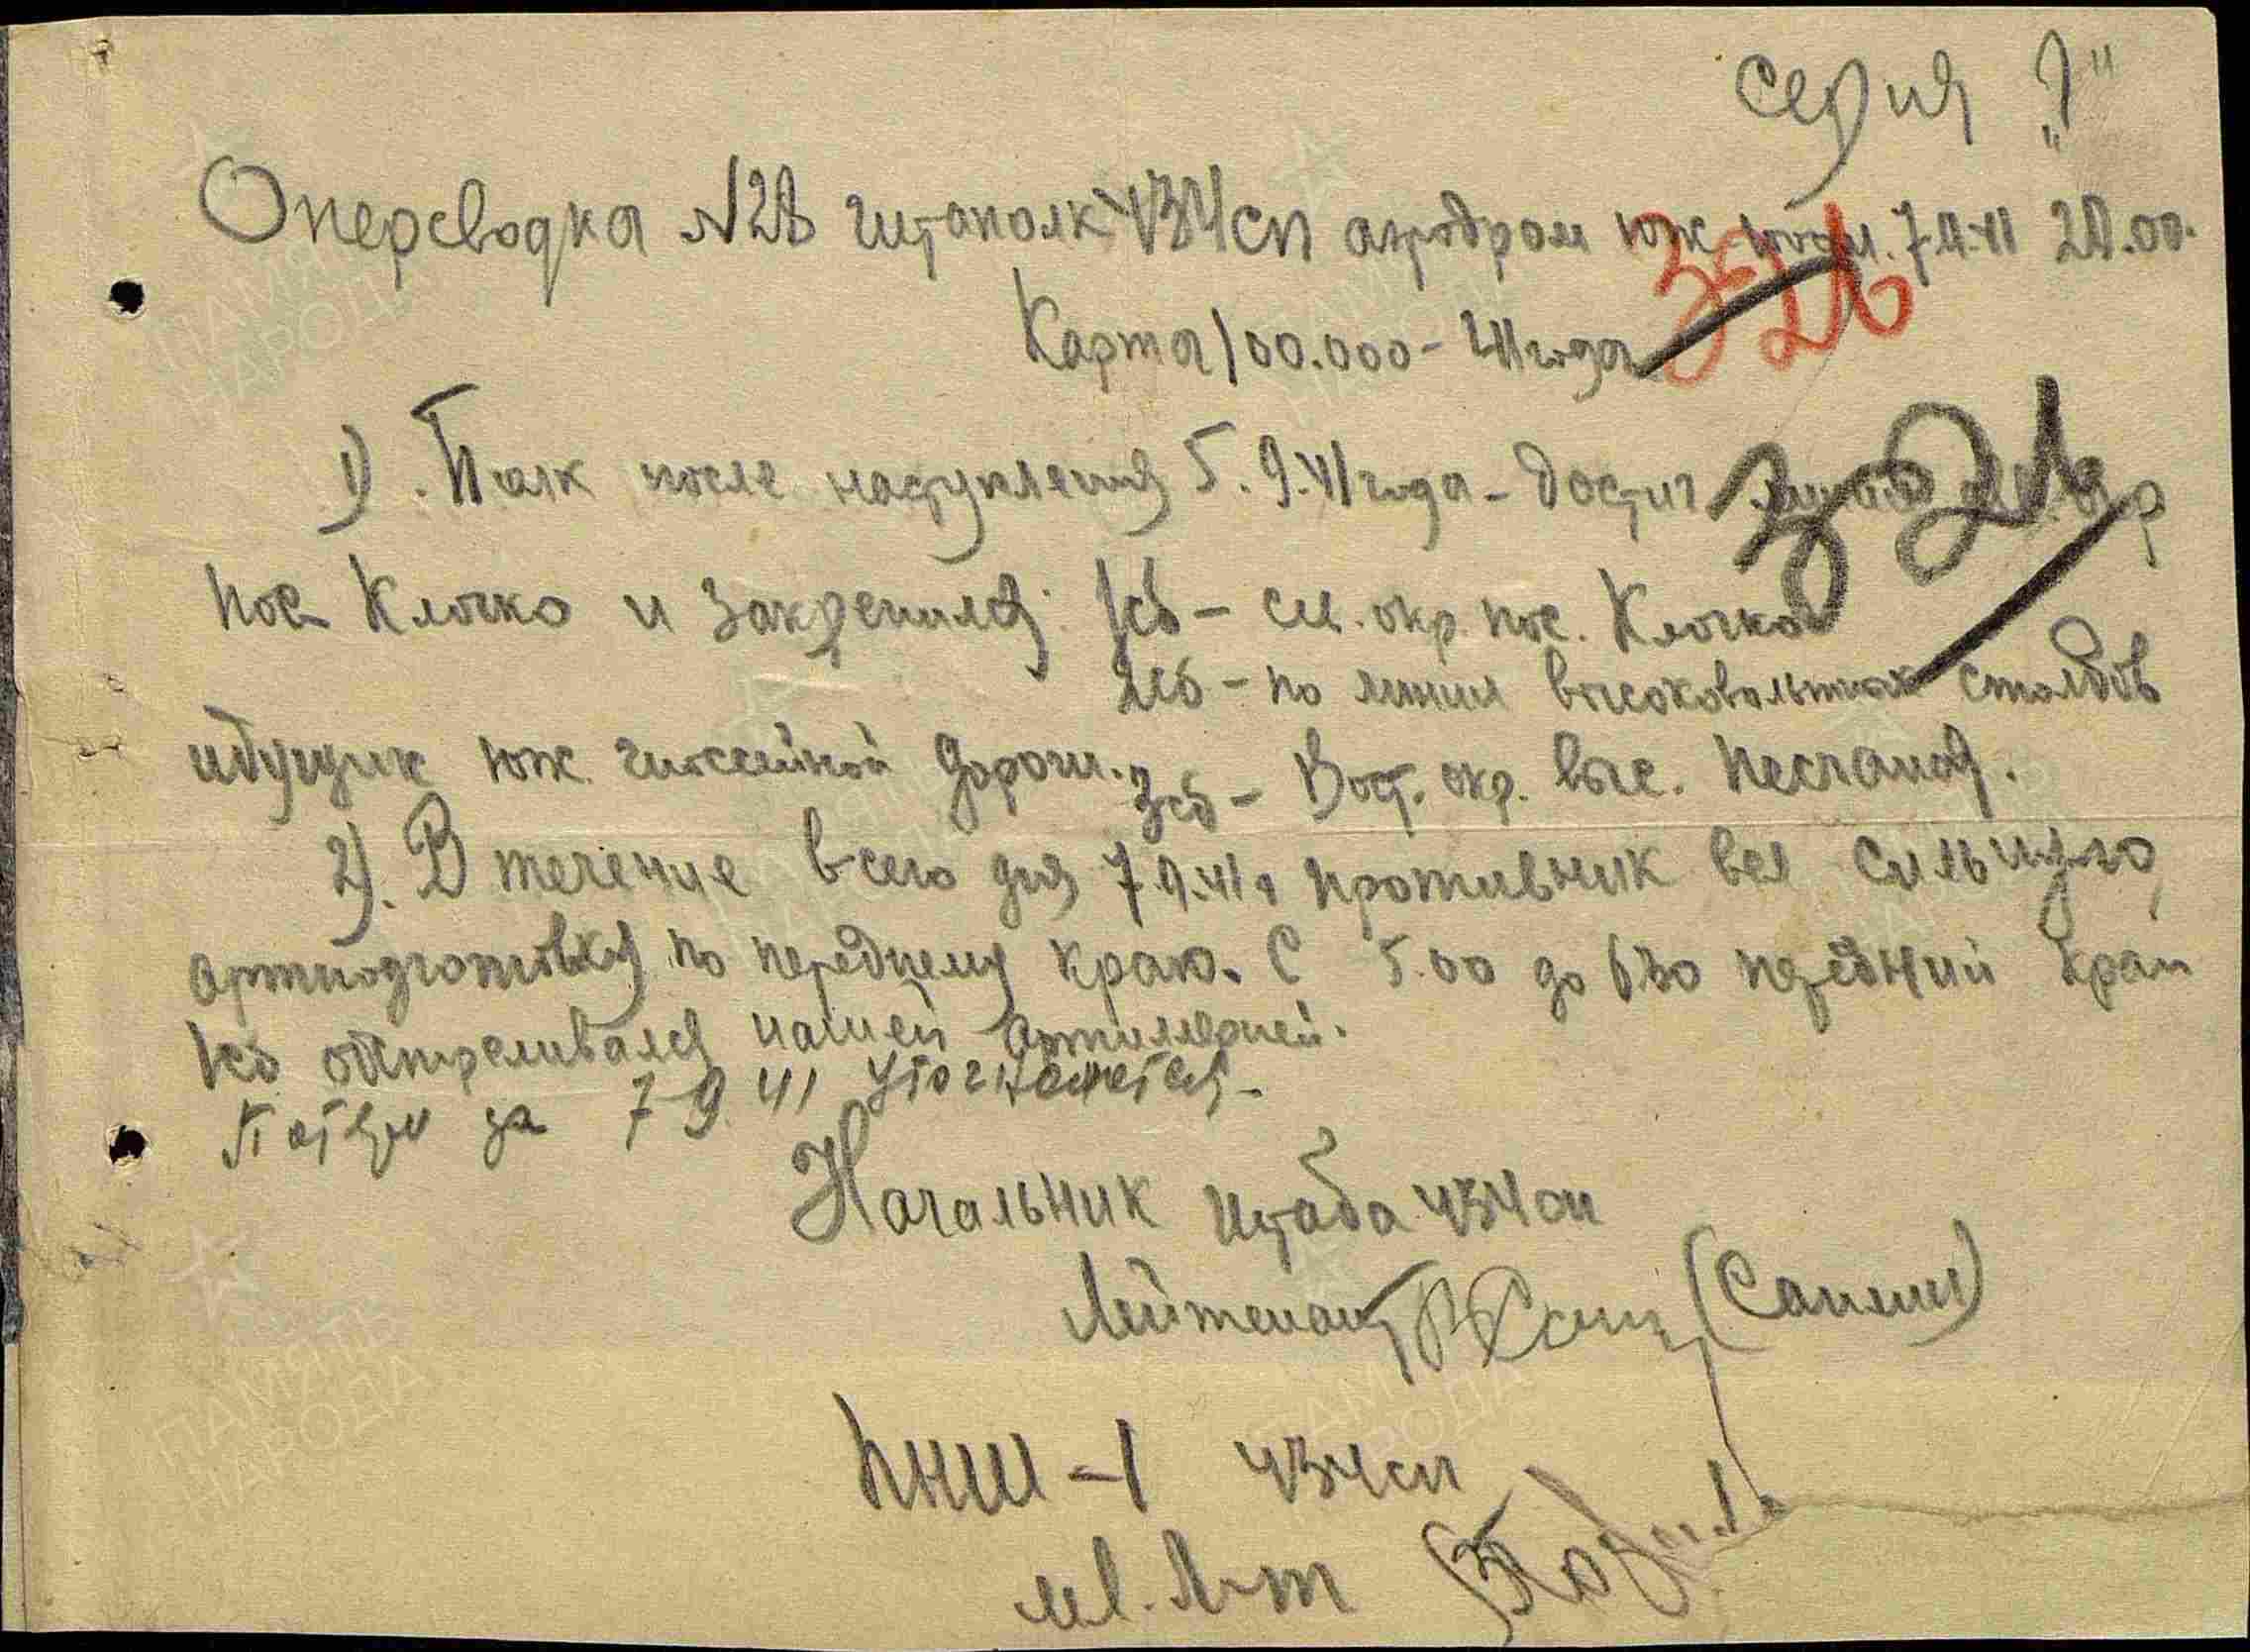 Серия „Г"
Оперсводка №28 Штаполк 434сп аэродром юж 7.9.41 20.00.
Карта 100.000 - 41 года
326
1). Полк после наступления 5.9.41 года - достиг
326
пос Клочко и закрепился: 1сб - сев. окр. пос. Клочко
2сб - по линии высоковольтных столбов
идущих юж. шоссейной дороги.
3сб - Вост. окр. выс. Песчаная.
2). В течение всего дня 7.9.41г противник вел сильную
артподготовку по переднему краю. С 5.00 до 630 передний край
1сб обстреливался нашей артиллерией.
Потери за 7 9 41 уточняются
Начальник штаба 434сп
Лейтенант
ПНШ-1 434сп
мл. л-т
ПАМЯТЬ НАРОДА